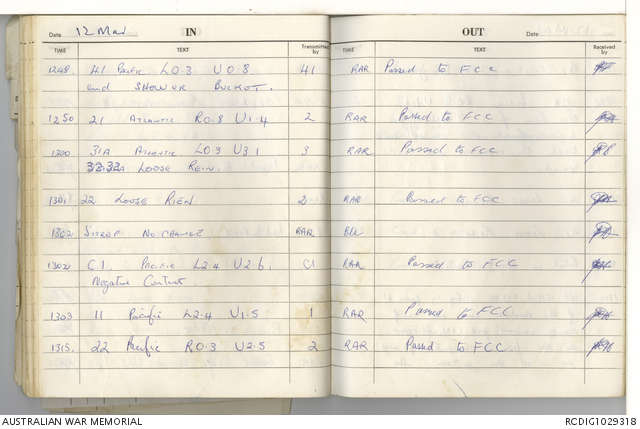 Date 12 Mar IN OUT Date
TIME TEXT Transmitted by TIME TEXT Received by
1248. 41 Pacific L0.3 U0.8 41 RAR Passed to FCC
end SHOWER BUCKET.
1250 21 ATLANTIC R0.8 U1.4 2 RAR Passed to FCC
1300 31A ATLANTIC L0.3 U3.1 3 RAR Passed to FCC
32.32A LOOSE REIN.
1301 22 LOOSE RIEN 2 RAR Passed to FCC
1302 SITREP NO CHANGE RAR
1302 C1. Pacific L2.4 U2.6. C1 RAR Passed to FCC
Negative Contact
1303 11 Pacific L2.4 U1.5 1 RAR Passed to FCC.
1315. 22 Pacific R0.3 U2.5 2 RAR Passed to FCC.
AUSTRALIAN WAR MEMORIAL RCDIG1029318